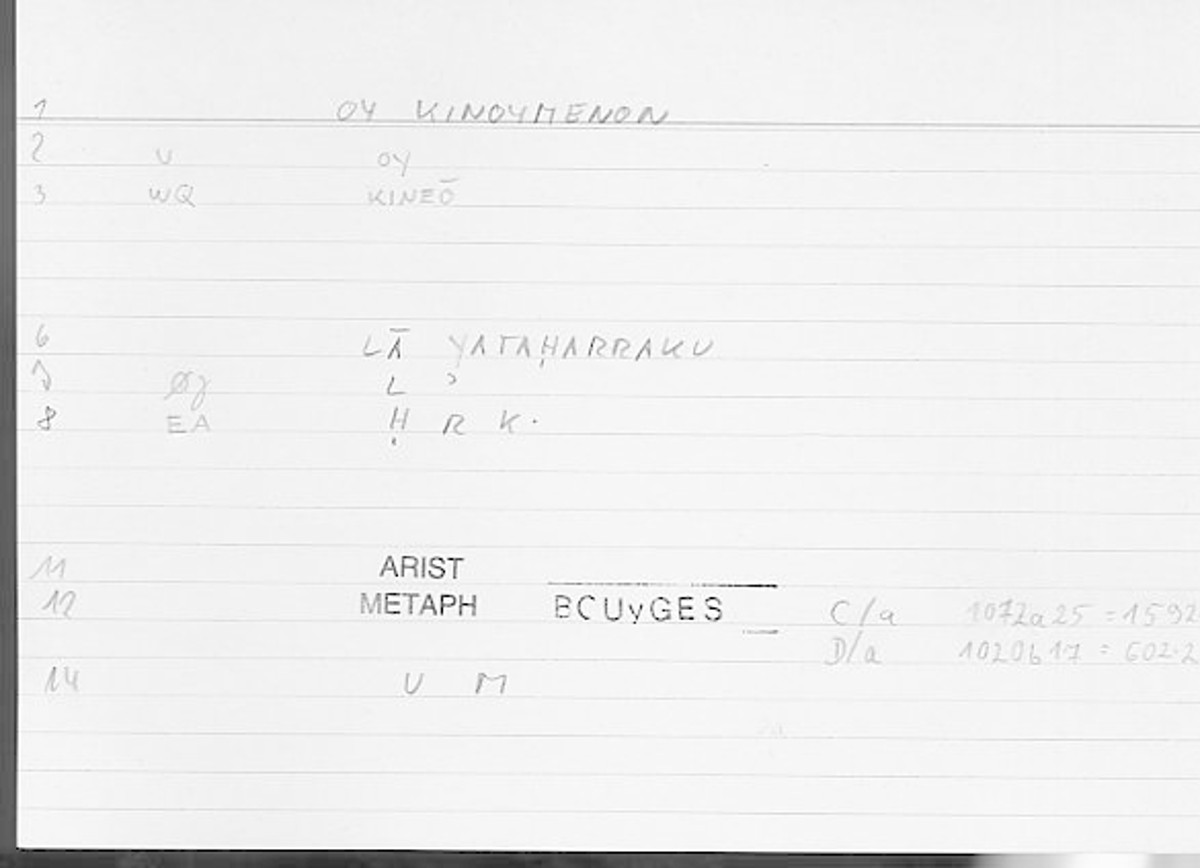 1 OY KINOYMENON
2 V OY
3 WQ KINEŌ
6 LĀ YATAḤARRAKU
7 Øz L ʾ
8 EA Ḥ R K.
11 ARIST
12 METAPH BCUyGES C/a 1072a25 = 1592
D/a 1020b17 = 602.2
14 V M